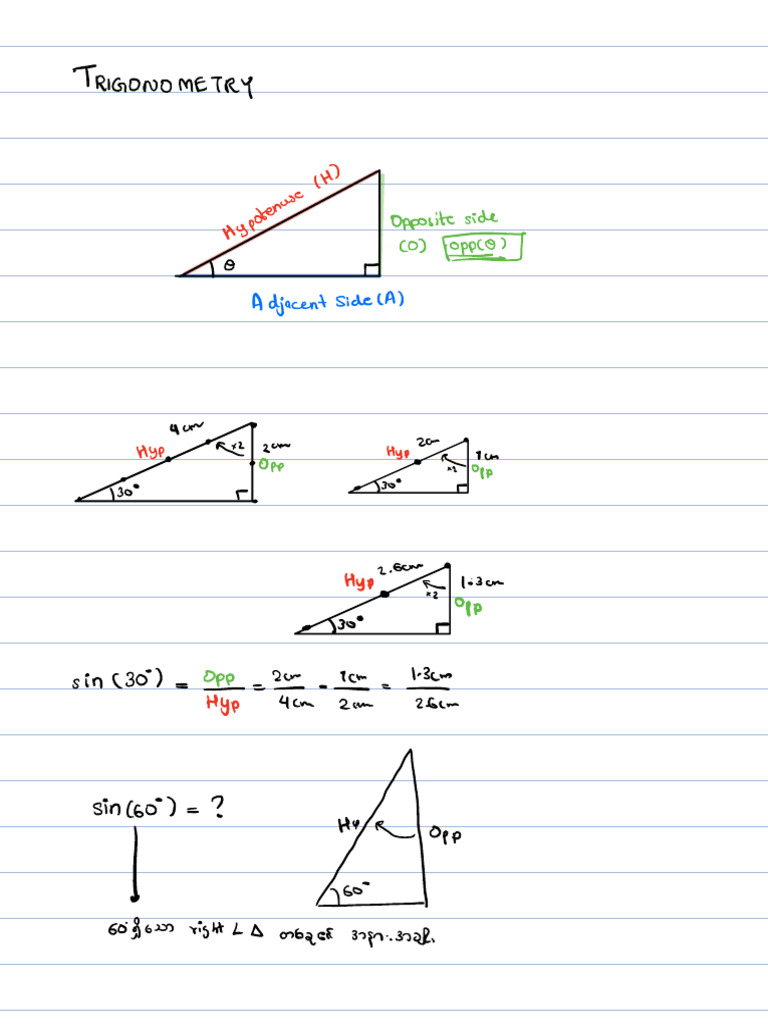 TRIGONOMETRY
Hypotenuse (H)
Opposite side
(O) opp(θ)
θ
Adjacent Side (A)
4cm
Hyp
×2
2cm
Opp
30°
2cm
Hyp
1cm
×2
Opp
30°
2.6cm
Hyp
1.3cm
×2
Opp
30°
sin (30°) = Opp/Hyp = 2cm/4cm = 1cm/2cm = 1.3cm/2.6cm
sin(60°) = ?
Hyp
Opp
60°
60° ရှိသော right ∠ Δ